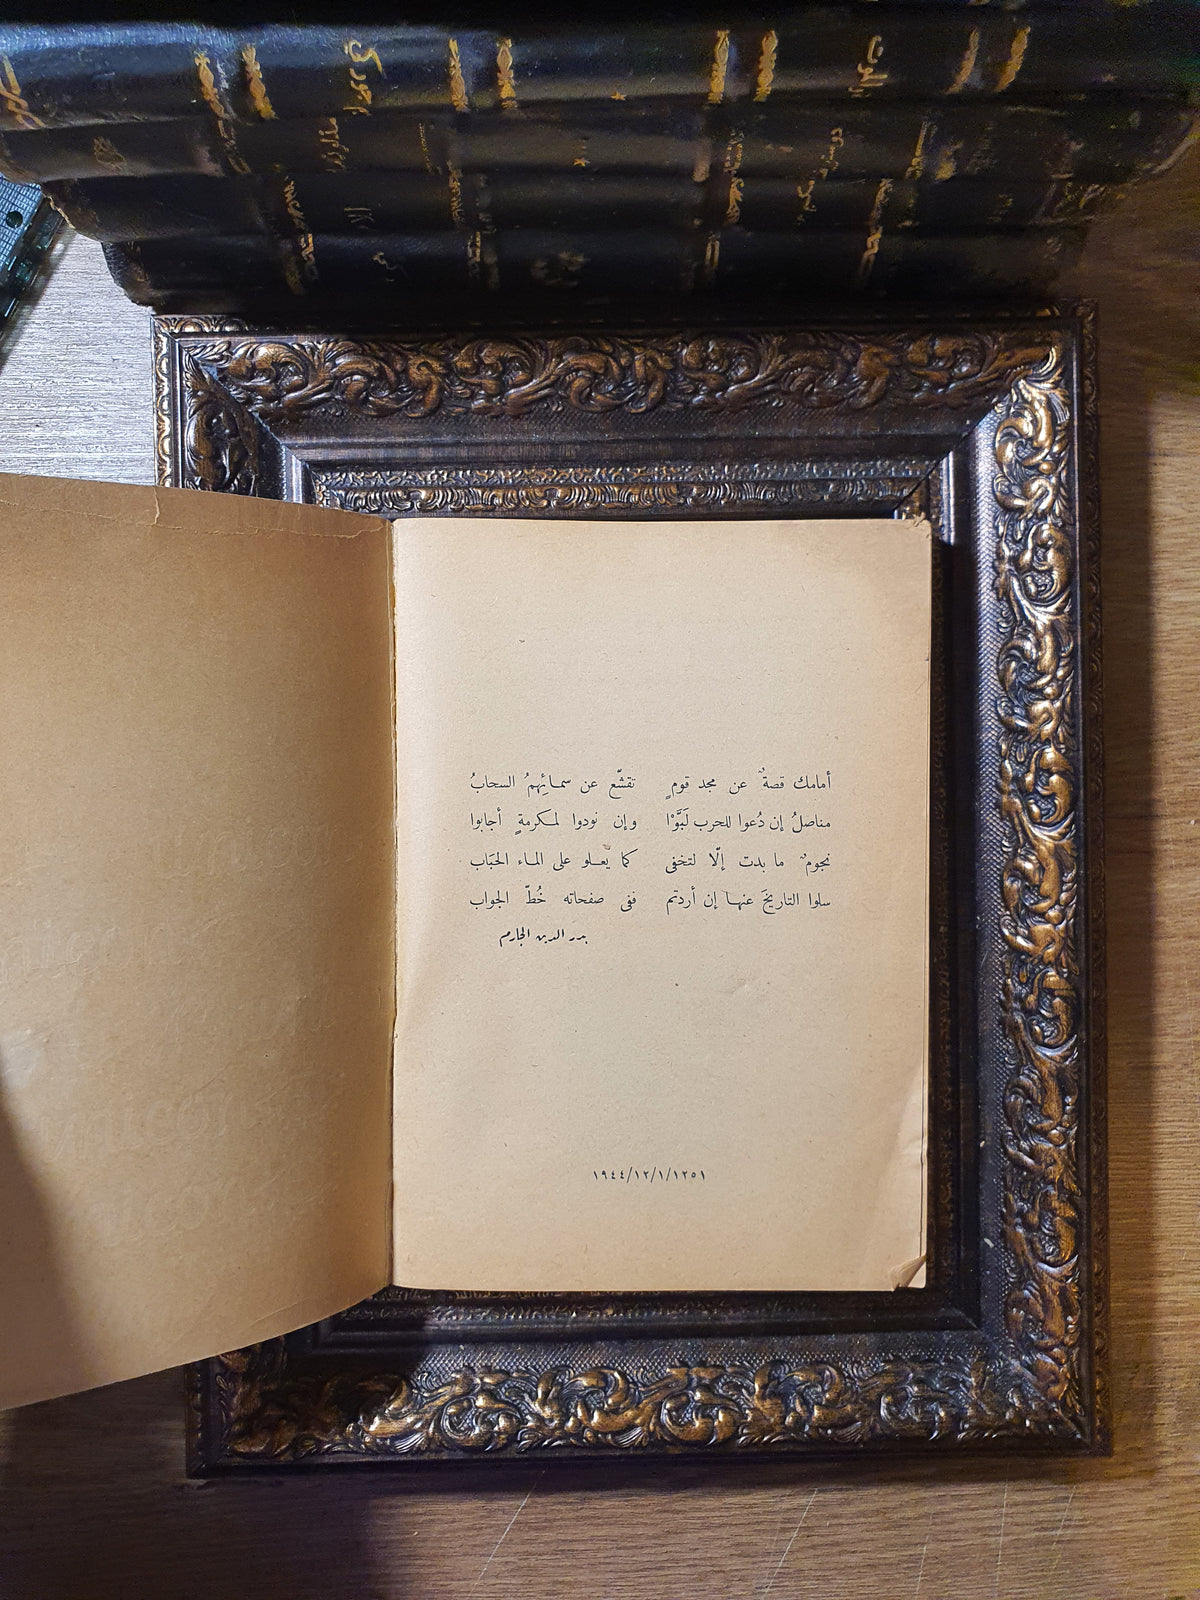 أمامك قصةٌ عن مجد قومٍ تقشّع عن سمائِهمُ السحابُ
مناصلُ إن دُعوا للحرب لَبَّوْا وإن نودوا لمكرمةٍ أجابوا
نجومٌ ما بدت إلّا لتخفى كما يعلو على الماء الحَبَاب
سلوا التاريخَ عنها إن أردتم ففى صفحاته خُطّ الجواب
بدر الدين الجارم
١٩٤٤/١٢/١/١٢٥١